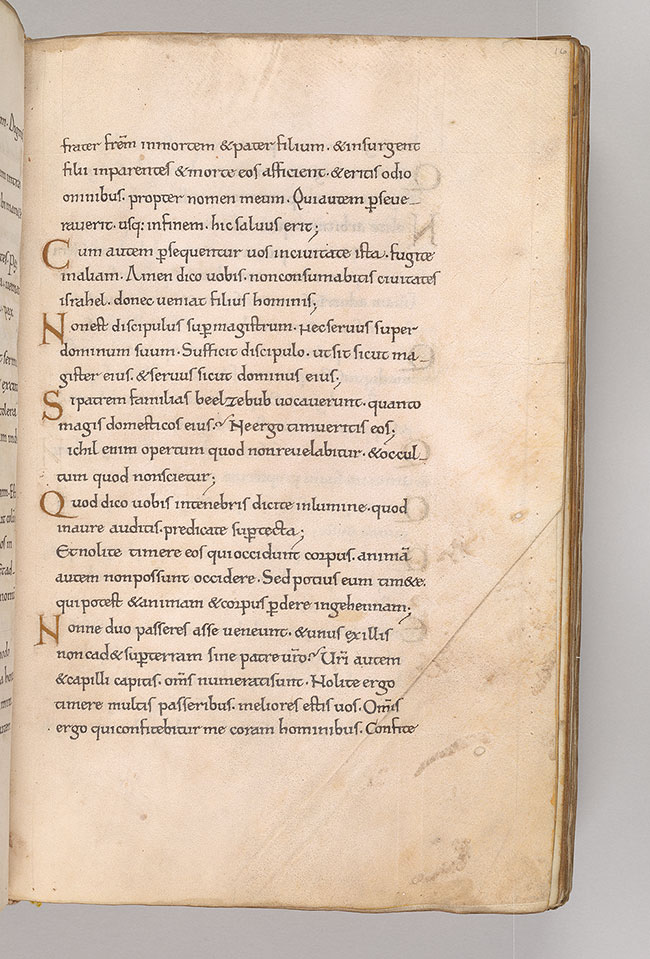 16
frater frēm inmortem & pater filium · & insurgent
filii inparentes & morte eos afficient · & eritis odio
omnibus · propter nomen meum · Quiautem ꝑseue-
rauerit · usq: infinem · hic saluus erit;
Cum autem ꝑsequentur uos inciuitate ista · fugite
inaliam · Amen dico uobis · nonconsumabitis ciuitates
israhel · donec ueniat filius hominis;
Nonest discipulus suꝑmagistrum · Necseruus super
dominum suum · Sufficit discipulo · utsit sicut ma-
gister eius · & seruus sicut dominus eius;
Sipatrem familias beelzebub uocauerunt · quanto
magis domesticos eius? Neergo timueritis eos;
ichil enim opertum quod nonreuelabitur · & occul-
tum quod nonscietur;
Quod dico uobis intenebris dicite inlumine · quod
inaure auditis · predicate suꝑtecta;
Etnolite timere eos quioccidunt corpus · animā
autem nonpossunt occidere · Sedpotius eum tim&e ·
quipotest & animam & corpus ꝑdere ingehennam;
Nonne duo passeres asse ueneunt · & unus exillis
noncad& suꝑterram sine patre urō? Urī autem
& capilli capitis · om̄s numeratisunt · Nolite ergo
timere multis passeribus · meliores estis uos · Om̄is
ergo quiconfitebitur me coram hominibus · Confite-